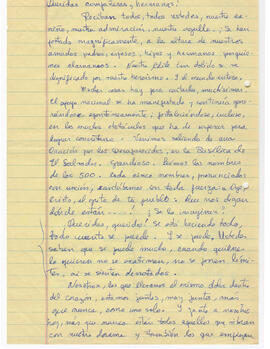 Queridas compañeras, hermanas:
Reciban todo, todos ustedes, nuestro ca-
riño, nuestra admiración, nuestro orgullo. ¡Se han
portado magníficamente, a la altura de nuestros
amados padres, esposos, hijos y hermanos, por quie-
nes clamamos! Nuestro Chile tan dolido se ve
dignificado por vuestro heroísmo. Y el mundo incluso.
Modos usas hay para contarles, muchísimas
El apoyo nacional se ha manifestado y continúa
espontáneamente; fortaleciéndose, incluso,
en los muchos obstáculos que ha de superar para
lograr concretarse. Venimos saliendo de una
oración por los Desaparecidos, en la Basílica de
El Salvador. Grandioso. Leímos los nombres
de los 500. Cada cinco nombres, pronunciados
con unción, cantábamos con toda fuerza:
el grito de tu pueblo: que nos digan
dónde están.....! ¡Se lo imaginan!
Queridas, queridos: Se está haciendo todo,
todo cuanto se puede. Y se puede. Ustedes
saben que se puede mucho, cuando quienes
lo quieren no se escatiman, no se ponen lími-
tes, ni se sienten derrotados.
Nosotros, los que llevamos el mismo dolor dentro
del corazón, estamos juntos, muy juntos, más
que nunca, como uno solo. Y junto a nosotros
hoy, más que nunca están todos aquellos que vibran
con nuestro drama y también los que